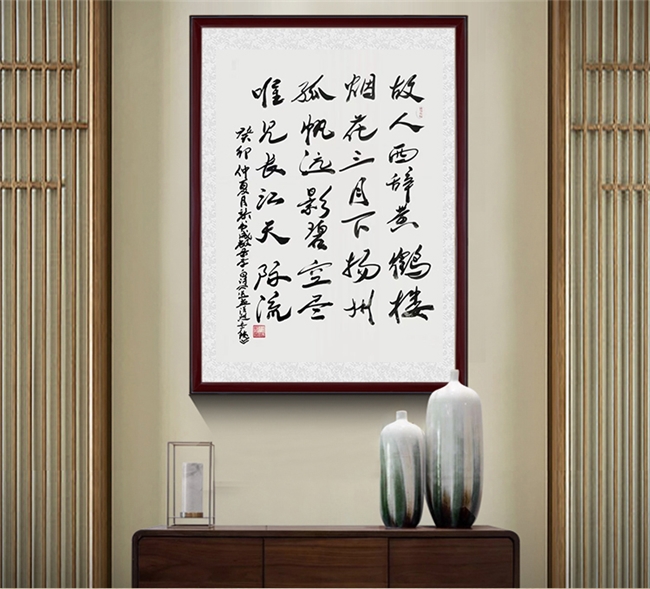 故人西辞黄鹤楼
烟花三月下扬州
孤帆远影碧空尽
唯见长江天际流
癸卯仲夏月